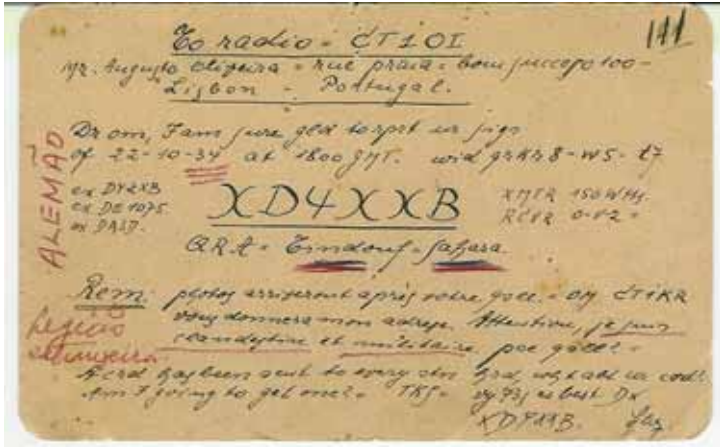 141
To radio = CT1OI
Mr. Augusto Oliveira = rue praia = bom successo 100 -
Lisbon - Portugal.
Dr om, I am sure gld to rprt ur sigs
of 22-10-34 at 1800 GMT. wid QRK R8 - W5 - t7
ALEMÃO
ex DE 1075.
XD4XXB
XMTR 150 Wtts.
RCVR 0-V-2 =
QRA = Tindouf = Sahara.
Rem: photos arriveront après votre QSL. = OM CT1KR
vous donnera mon adresse. Attention, je suis
clandestine et militaire, pse QSL! =
Legião
A crd has been sent to every stn hrd, wht abt ur card?
Am I going to get one? = TKS = vy 73s es best Dx
XD4XXB.